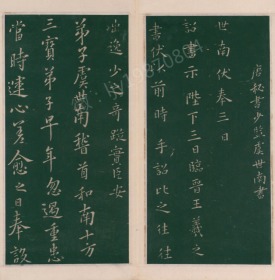 唐秘書少監虞世南書
世南伏奉三日
詔書示陛下三日臨晉王羲之
書伏以前時手詔比之往往
當逸少之奇蹤實臣安
弟子虞世南稽首和南十方
三寶弟子早年忽遇重患
當時運心差愈之日奉設